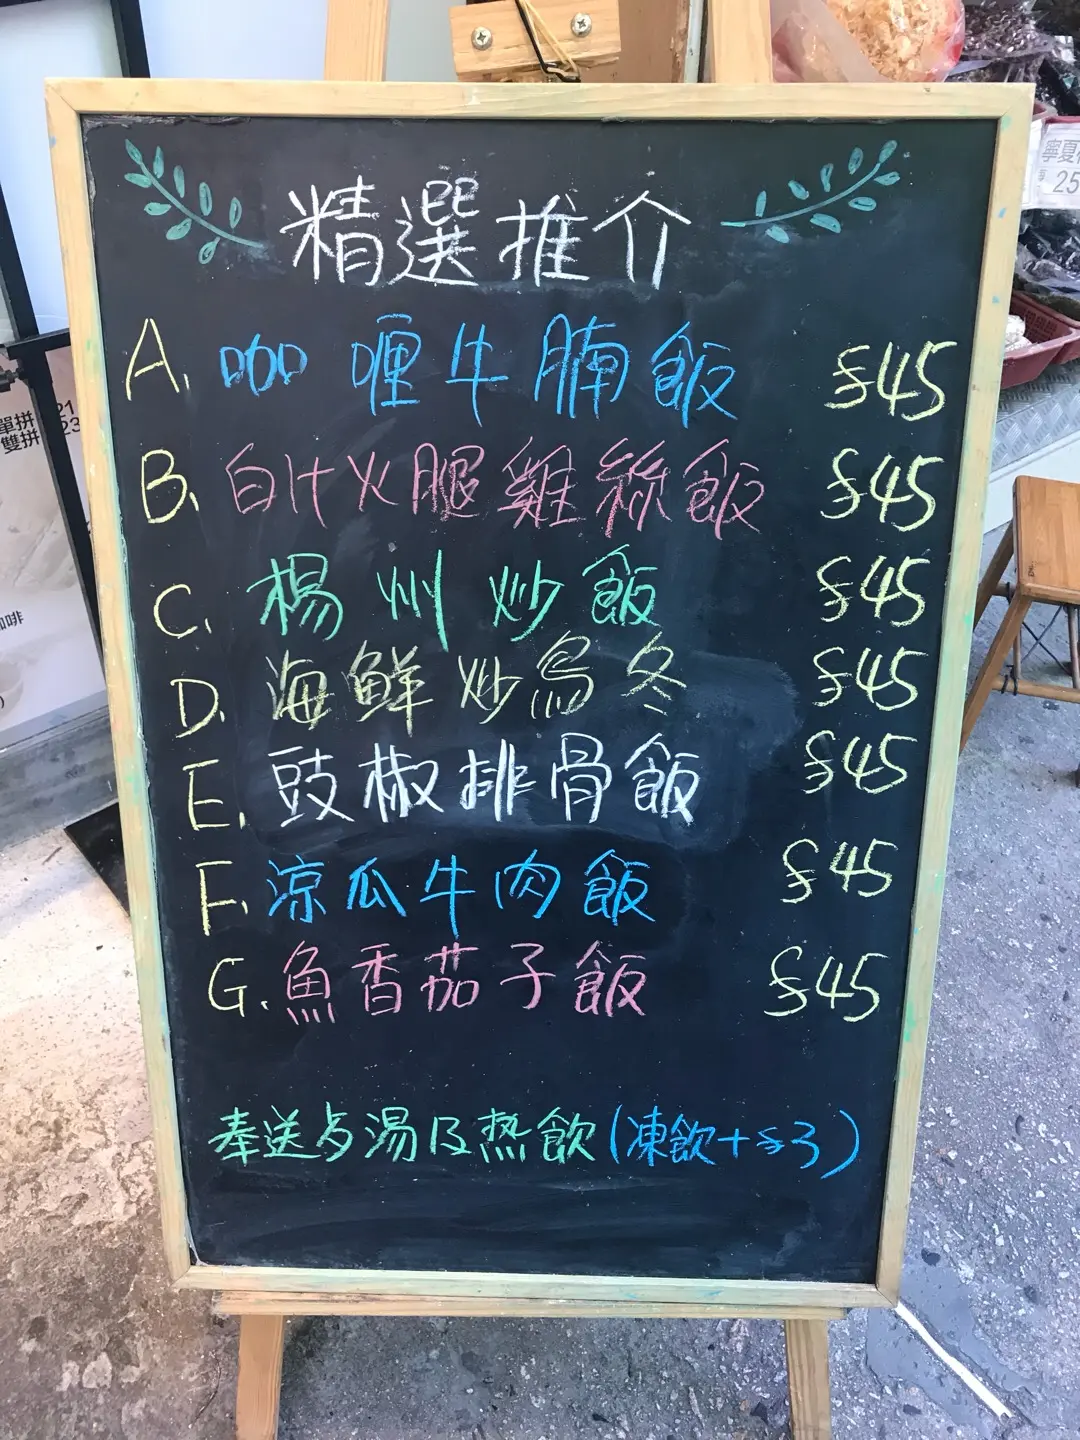 精選推介
A. 咖喱牛腩飯 $45
B. 白汁火腿雞絲飯 $45
C. 楊州炒飯 $45
D. 海鮮炒烏冬 $45
E. 豉椒排骨飯 $45
F. 涼瓜牛肉飯 $45
G. 魚香茄子飯 $45
奉送是湯及热飲(凍飲+$3)
單拼 21
雙拼 23
咖啡
寧夏
25